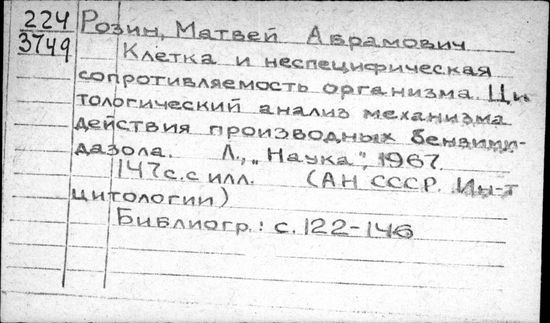 224
3749
Розин, Матвей Абрамович
Клетка и неспецифическая
сопротивляемость организма. Ци-
тологический анализ механизма
действия производных бензими-
дазола. Л., „Наука", 1967.
147с. с илл. (АН СССР. Ин-т
цитологии)
Библиогр.: с. 122-146